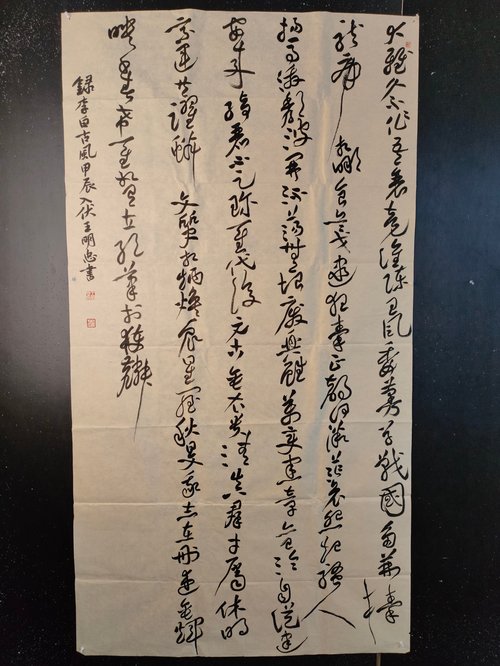 大雅久不作吾衰竟誰陳王風委蔓草戰國多荊榛
龍虎相啖食兵戈逮狂秦正聲何微茫哀怨起騷人
揚馬激頹波開流蕩無垠廢興雖萬變憲章亦已淪自從建
安來綺麗不足珍聖代復元古垂衣貴清真群才屬休明
乘運共躍鱗文質相炳煥衆星羅秋旻我志在刪述垂輝
映千春希聖如有立絕筆於獲麟
録李白古風甲辰入伏王明忠書